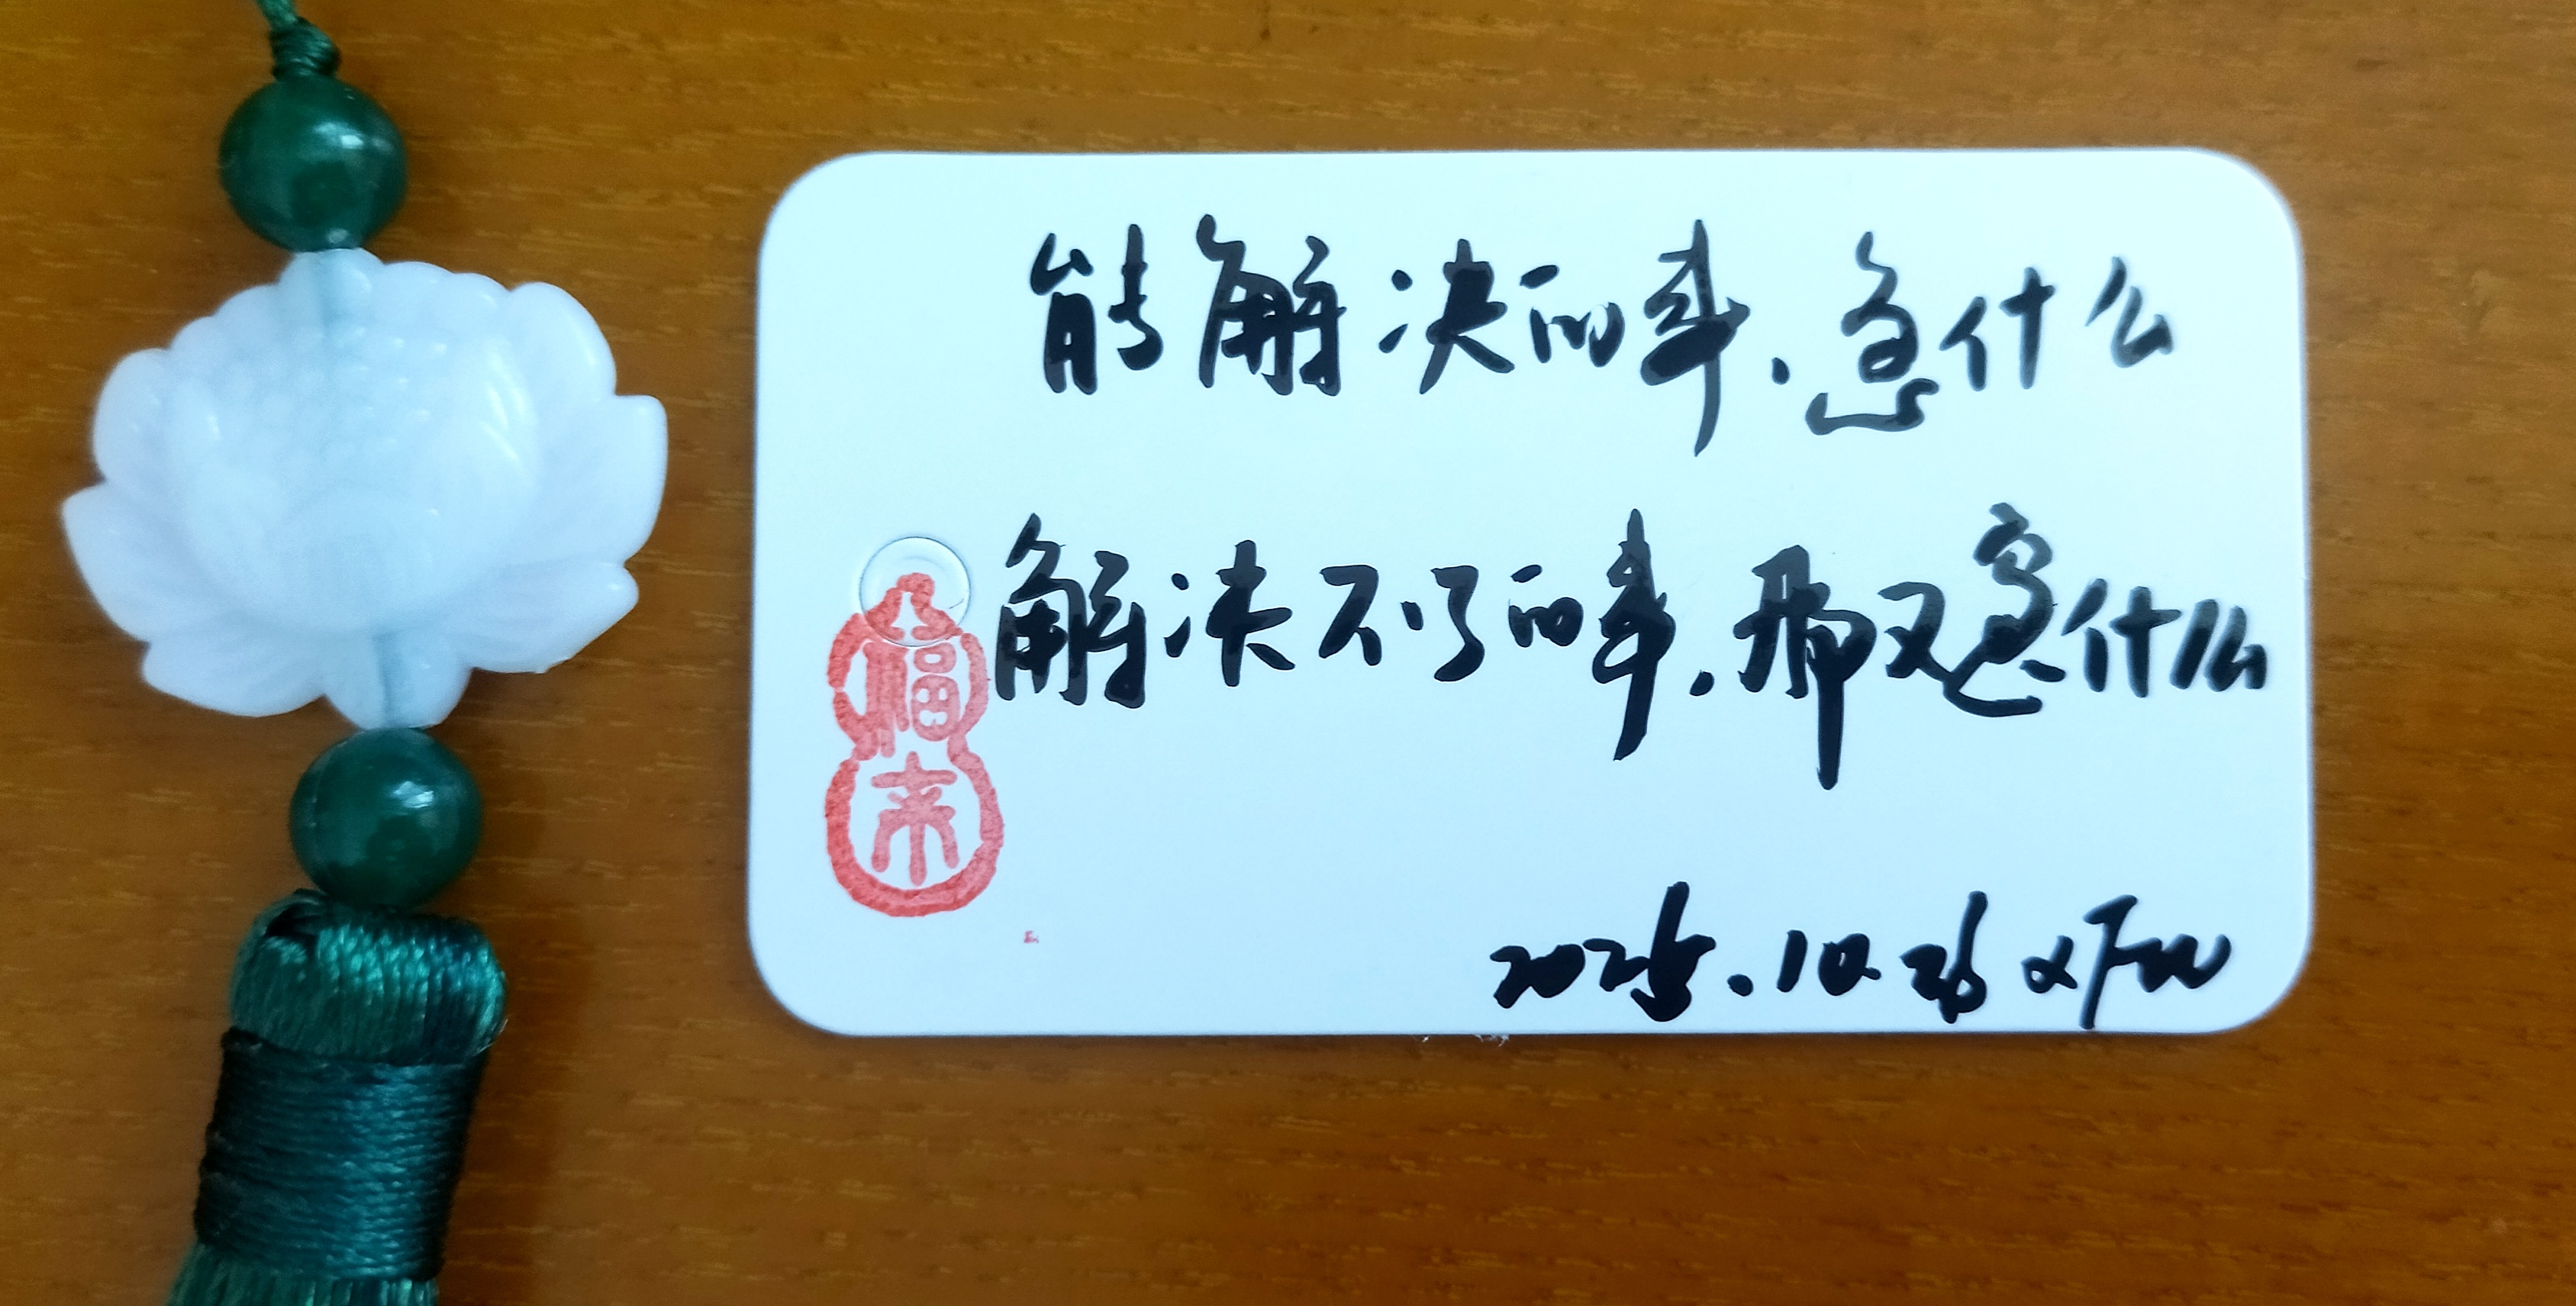 能解决的事.急什么
解决不了的事.那又急什么
福来
2025.10.26 XFW